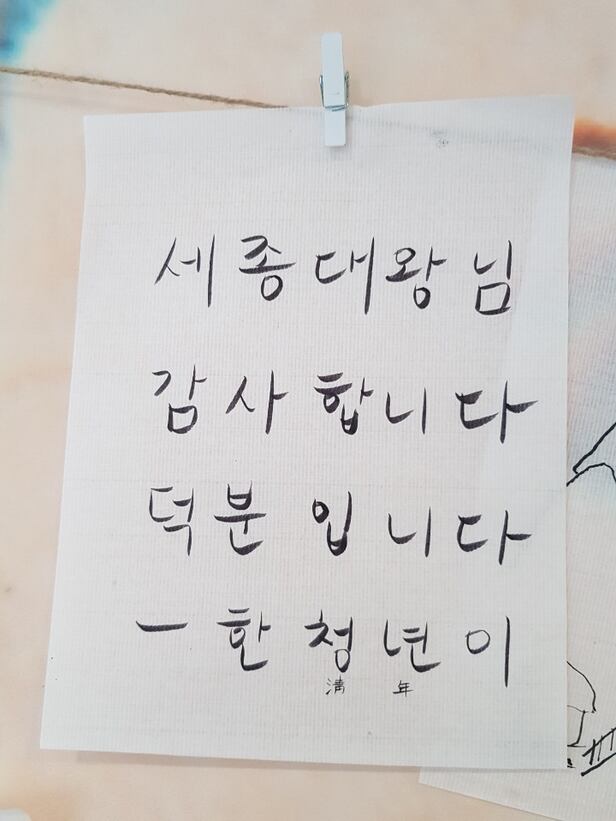 세종대왕님
감사합니다
덕분입니다
一 한 청년이
淸 年